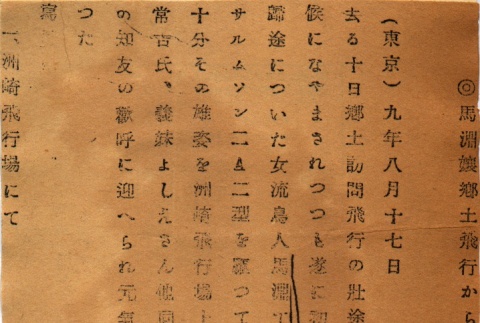 ◎馬淵孃鄕土飛行から
(東京)九年八月十七日
去る十日鄕土訪問飛行の壯途
候になやまされつつも遂に
歸途についた女流鳥人馬淵
サルムソン二A二型を驅つて
十分その雄姿を洲崎飛行場上
常吉氏、義妹よしえさん他
の知友の歡呼に迎へられ元氣
つた
寫
洲崎飛行場にて